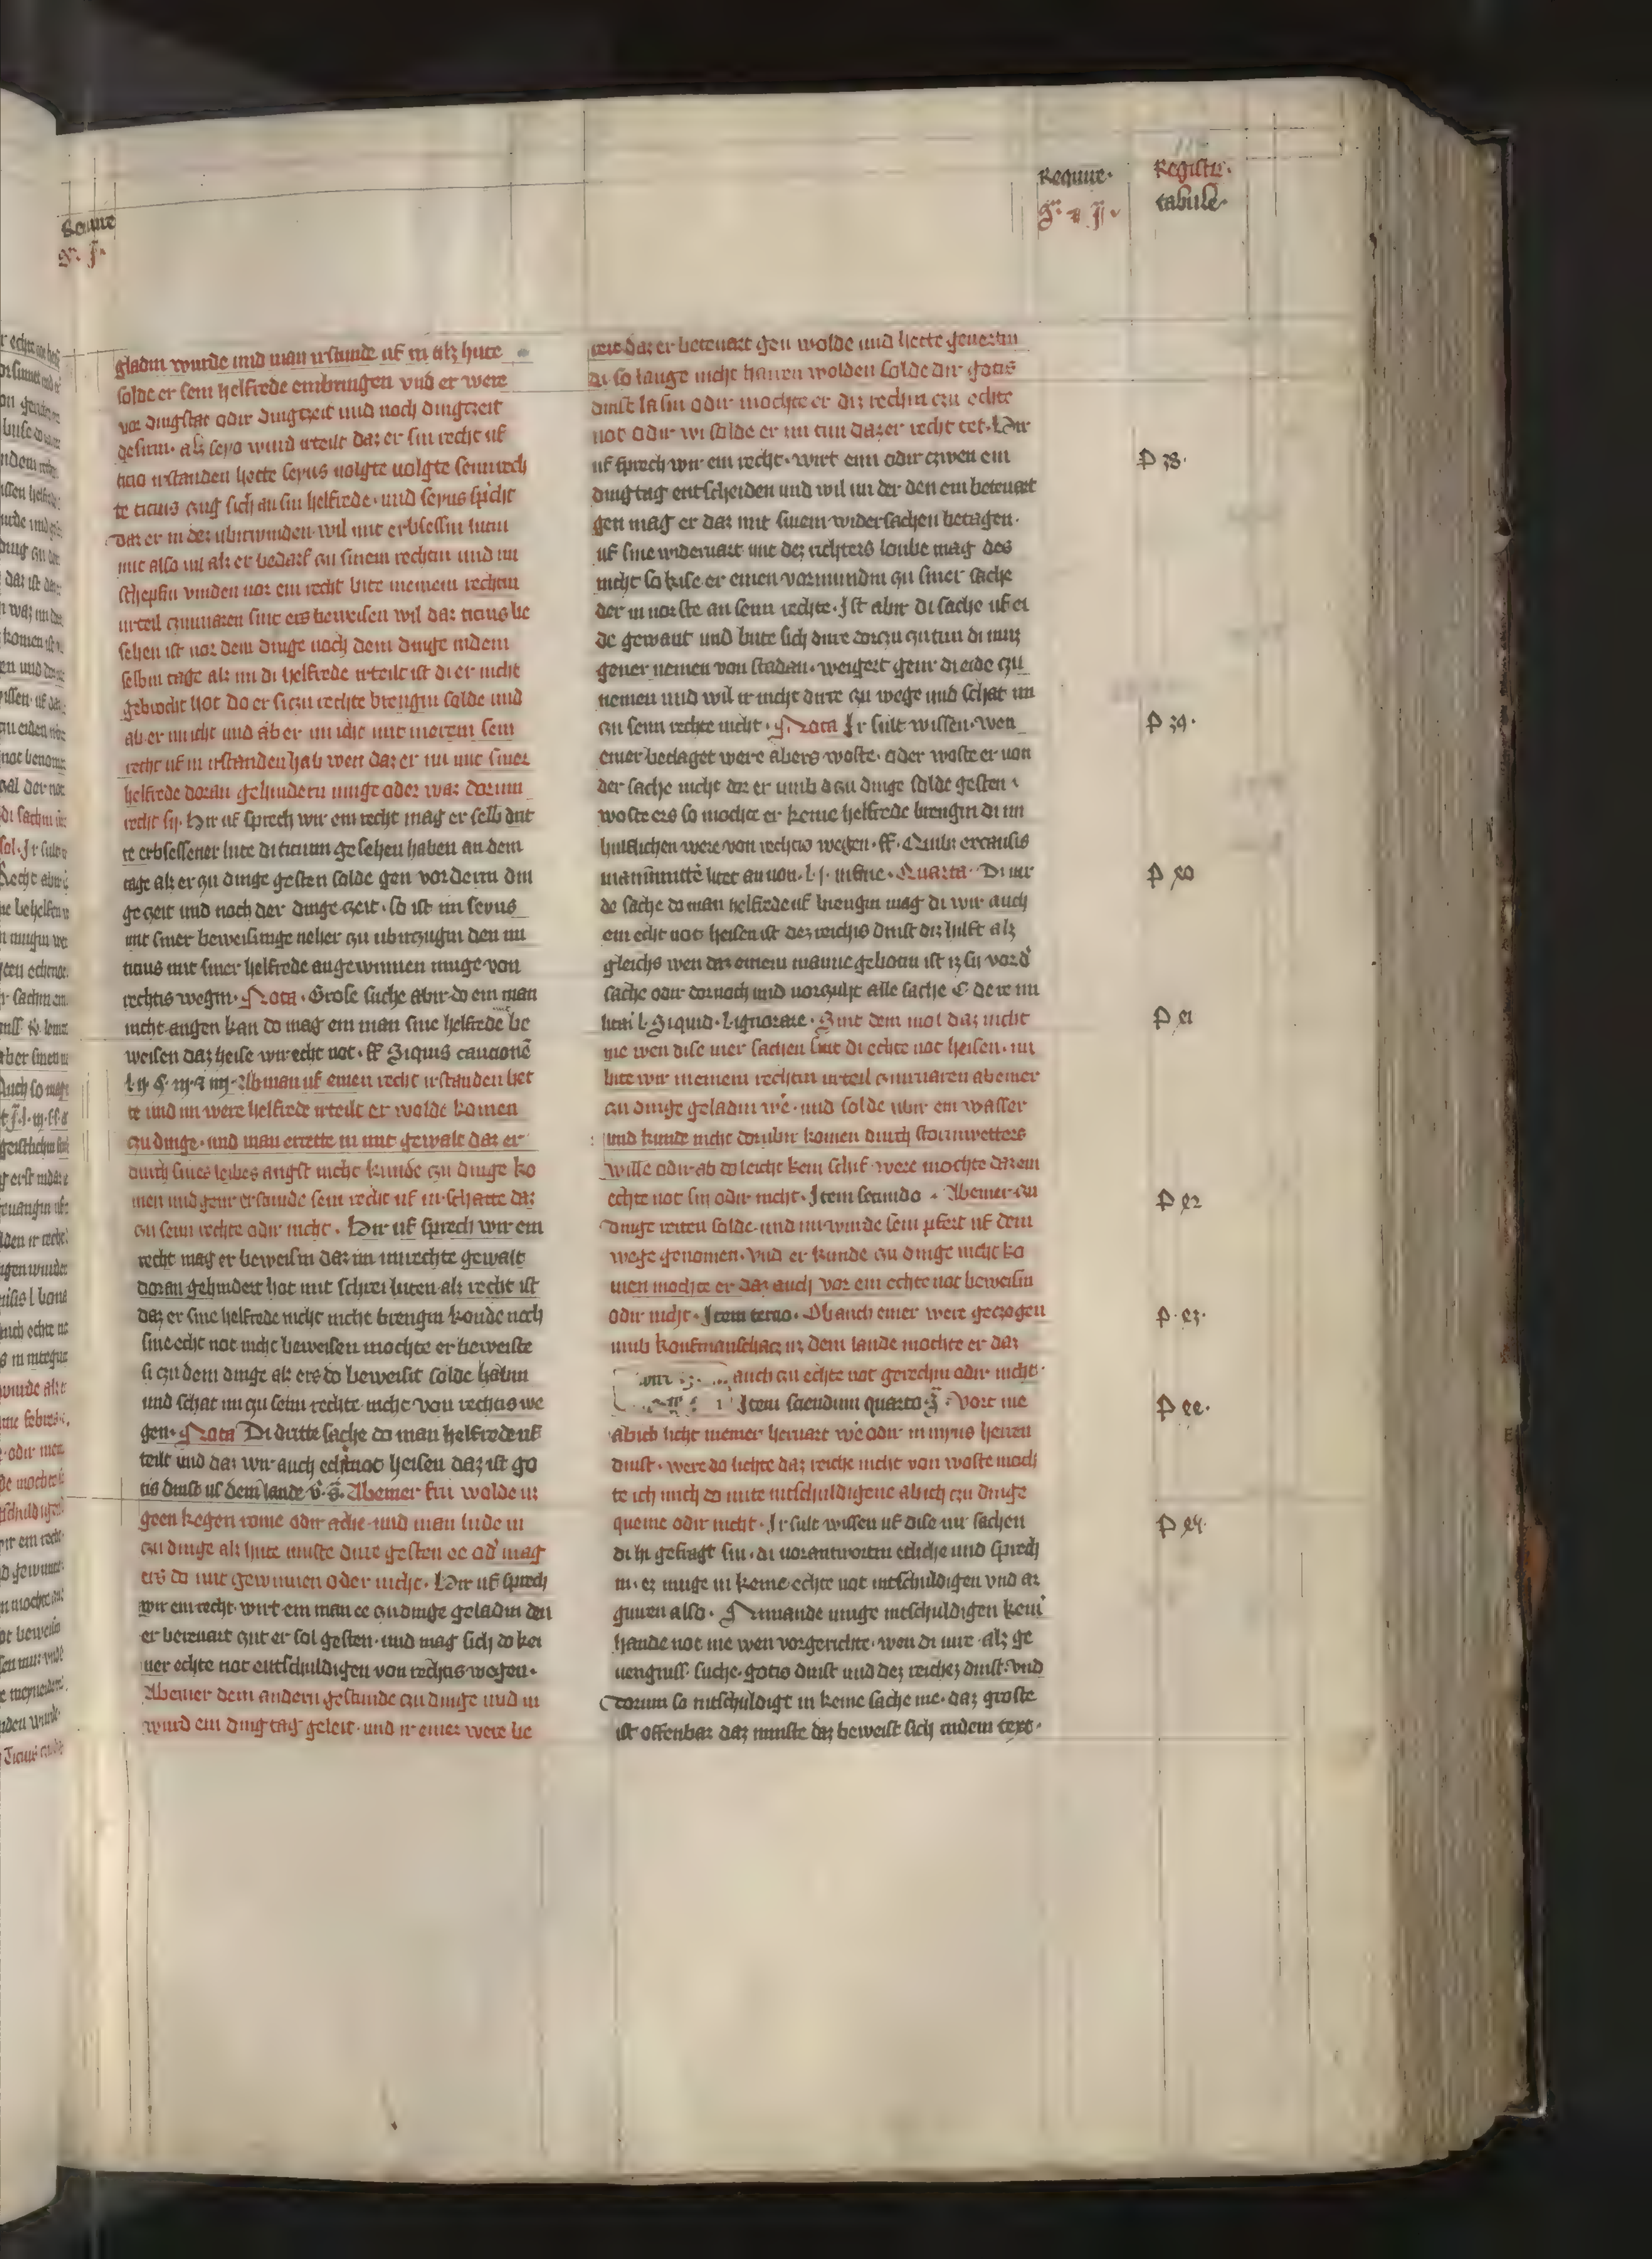 Require
Registrum
tabule
gladin wurde und man irstunde uf in alz hute
solde er sein helfrede einbrengen und er were
vor dingstat odir dingtzeit und noch dingtzeit
gesein. alz seyo wurd irteilt daz er sin recht uf
ticio irstanden hette seyus uolgte uolgte seim rech
te ticius czug sich an sin helfrede. und seyus spricht
daz er in dez ubirwinden wil mit erbsessin lutin
mit also uil alz er bedarf czu sinem rechtin und im
schepfin vinden uor ein recht bitt meinem rechtin
urteil czuuaren sint ers beweisen wil daz ticius be
sehen ist uor dem dinge noch dem dinge indem
selbin tage alz im di helfrede irteilt ist di er nicht
gebrocht hot do er si czu rechte brengin solde und
ab er im icht und ab er im icht mit merem sein
recht uf in irstanden hab wen daz er im mit siner
helfrede doran gehindern muge oder waz dorum
recht sy. Hir uf sprech wir ein recht mag er selb drit
te erbsessener lute di ticium gesehen haben an dem
tage alz er czu dinge gesten solde gen vor deim din
ge czeit und noch der dinge czeit. so ist im seyus
mit siner beweisunge neher czu ubirczugin den im
ticius mit siner helfrede angewinnen muge von
rechtis wegin. Nota. Grose suche abir do ein man
nicht angen kan do mag ein man sine helfrede be
weisen daz heise wir echt not. ff Siquis caucione
l. ij. §. iij. z iiij. Ab man uf einen recht irstanden het
te und im were helfrede irteilt er wolde komen
czu dinge. und man errette in mit gewalt daz er
durch sines leibes angst nicht kunde czu dinge ko
men und genir erstunde sein recht uf in schatte daz
czu seim rechte odir nicht. Hir uf sprech wir ein
recht mag er beweisin daz im unrechte gewalt
doran gehindert hot mit schrei luten alz recht ist
daz er sine helfrede nicht nicht brengin konde noch
sine echt not nicht beweisen mochte er beweiste
si czu dem dinge alz ers do beweisit solde habin
und schat im czu seim rechte nicht von rechtis we
gen. Nota Di dritte sache do man helfrede uf
teilt und daz wir auch echt not heisen daz ist go
tis dinst us dem lande v. g. Ab einer sin wolde uz
geen kegen rome odir ache und man lude in
czu dinge alz hute muste dirre gesten ee od' mag
ers do mit gewinnen oder nicht. Hir uf sprech
wir ein recht. wirt ein man ee czu dinge geladin den
er beteuart czut er sol gesten. und mag sich do kei
ner echte not entschuldigen von rechtis wegen.
Ab einer dem andern gestunde czu dinge und in
wurd ein dingtag geleit. und ir einer were be
reit daz er beteuart gen wolde und hette geuertin
di so lange nicht harren wolden solde dir gotis
dinst lasin odir mochte er diz rechin czu echte
not odir wi solde er im tun daz er recht tet. Hir
uf sprech wir ein recht. wirt eim odir czwen ein
dingtag entscheiden und wil im der den ein beteuart
gen mag er daz mit sinem widersachen betagen.
uf sine widerwart mit dez richters loube mag des
nicht so kise er einen vormundin czu siner sache
der in uor ste an seim rechte. Ist abir di sache uf ei
de gewant und bute sich dirre dorczu czu tun di muz
gener nemen von stadan. weigert genir di eide czu
nemen und wil ir nicht dirre czu wege und schat im
czu seim rechte nicht. Nota Ir sult wissen. wen
einer beclaget were abers woste. oder woste er uon
der sache nicht dor er umb a czu dinge solde gesten
woste ers so mochte er keine helfrede brengin di im
hulflichen were von rechtis wegen. ff. Quibus ex causis
manumitte licet an non. l. j. in fine. Quarta. Di uir
de sache do man helfrede uf brengin mag di wir auch
ein echt not heisen ist dez reichis dinst diz hilft alz
gleichs wen ein einem manne gebotin ist iz sy vor d'
sache odir dornoch und uorczuht alle sache C de re mi
litari l. Siquid. l. ignorare. Sint dem mol daz nicht
me wen dise uier sachen sint di echte not heisen. im
bitt wir meinem rechtin urteil czuuaren ab einer
czu dinge geladin we. und solde ubir ein wasser
und kunde nicht dorubir komen durch stormwetters
wille odir ab do leicht kein schif were mochte daz ein
echte not sin odir nicht. Item secundo. Ab einer czu
dinge reiten solde und im wurde sein pfert uf dem
wege genomen. und er kunde czu dinge nicht ko
men mochte er daz auch vor ein echte not beweisin
odir nicht. Item tercio. Ob auch einer were geczogen
umb koufmanschaz in dem lande mochte er daz
auch czu echte not gerechin odir nicht.
Item sciendum quarto. Vort me
ab ich licht in einer heruart we odir in myns herren
dinst. were do lichte daz reiche nicht von woste moch
te ich mich do mite intschuldigene ab ich czu dinge
queme odir nicht. Ir sult wissen uf dise uir sachen
di hi gefragt sin. di uorantwortin etliche und sprech
in. ez muge in keine echte not intschuldigen und ar
guiren also. Nimande muge intschuldigen keini
hande not me wen vorgerichte. wen di uire. alz ge
uengniss. suche. gotis dinst und dez reichez dinst. und
dorum so intschuldigt in keine sache me. daz groste
ist offenbar daz minste daz beweist sich in dem text.
P 38.
P 39.
P 40
P 41
P 42
P. 43.
P 44.
P 45.